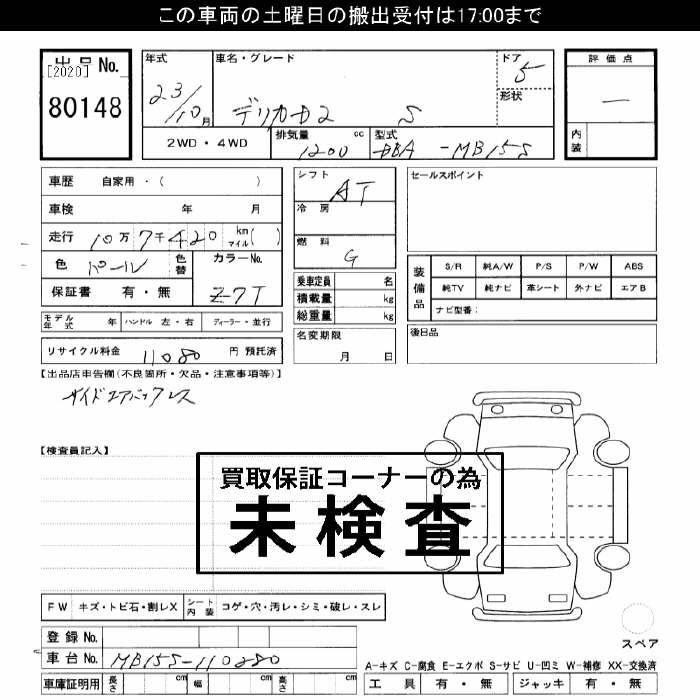 この車両の土曜日の搬出受付は17:00まで
出品 No.
[2020]
80148
年式
23/10月
車名・グレード
デリカD2 S
ドア
5
形状
評価点
—
内装
2WD・4WD
排気量 cc
1200
型式
DBA-MB15S
車歴 自家用・( )
車検 年 月
走行 10万7千420 km マイル( )
色 パール
色替
カラーNo.
Z7T
保証書 有・無
モデル年式 年
ハンドル 左・右
ディーラー・並行
リサイクル料金 11080 円 預託済
シフト
AT
冷房
燃料
G
乗車定員 名
積載量 kg
総重量 kg
名変期限
月 日
セールスポイント
装備品
S/R 純A/W P/S P/W ABS
純TV 純ナビ 革シート 外ナビ エアB
ナビ型番:
後日品
【出品店申告欄(不良箇所・欠品・注意事項等)】
サイドエアバックレス
【検査員記入】
買取保証コーナーの為
未検査
FW キズ・トビ石・割レX
シート内装 コゲ・穴・汚レ・シミ・破レ・スレ
登録 No.
車台 No. MB15S-110280
車庫証明用 長さ cm 幅 cm 高さ cm
スペア
A-キズ C-腐食 E-エクボ S-サビ U-凹ミ W-補修 XX-交換済
工具 有・無 ジャッキ 有・無